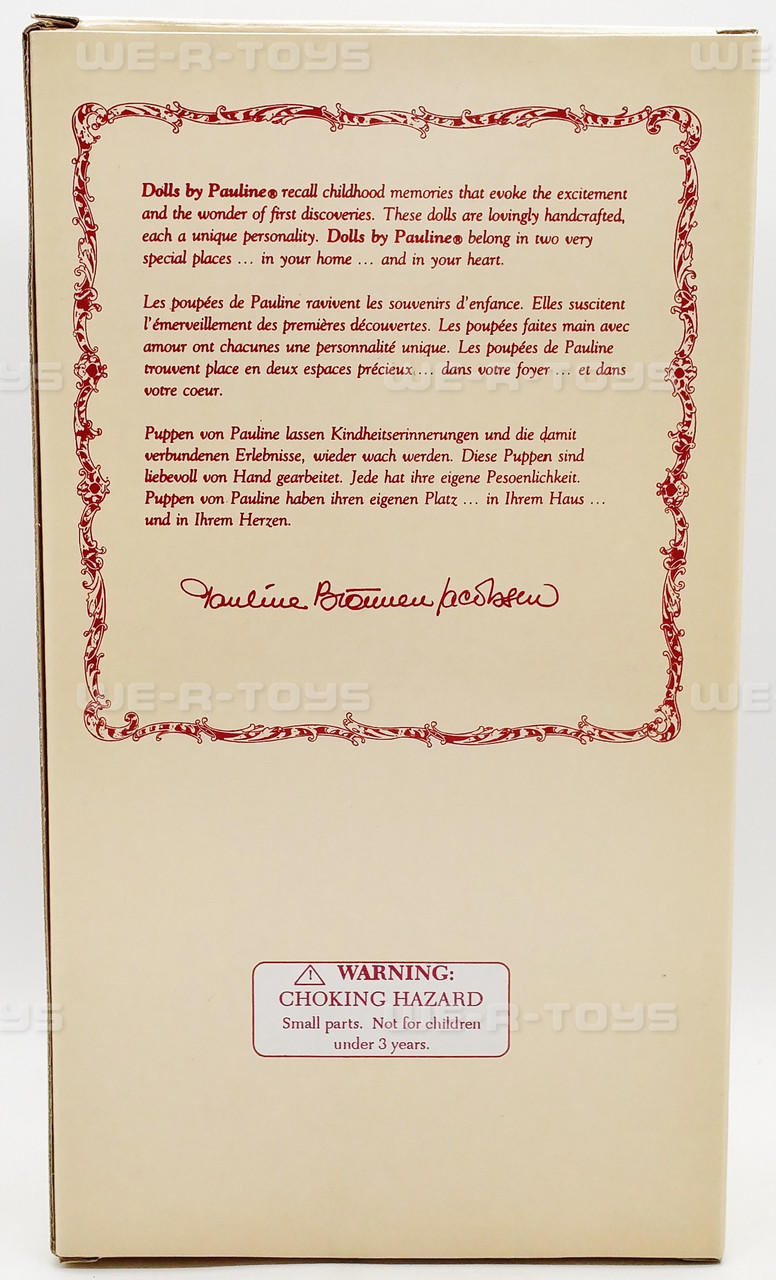 WE-R-TOYS
WE-R
Dolls by Pauline® recall childhood memories that evoke the excitement
and the wonder of first discoveries. These dolls are lovingly handcrafted,
each a unique personality. Dolls by Pauline® belong in two very
special places ... in your home ... and in your heart.
Les poupées de Pauline ravivent les souvenirs d'enfance. Elles suscitent
l'émerveillement des premières découvertes. Les poupées faites main avec
amour ont chacunes une personnalité unique. Les poupées de Pauline
trouvent place en deux espaces précieux ... dans votre foyer ... et dans
votre coeur.
YS
WE-R-TOYS
Puppen von Pauline lassen Kindheitserinnerungen und die damit
verbundenen Erlebnisse, wieder wach werden. Diese Puppen sind
liebevoll von Hand gearbeitet. Jede hat ihre eigene Pesoenlichkeit.
Puppen von Pauline haben ihren eigenen Platz ... in Ihrem Haus ...
und in Ihrem Herzen.
Pauline Brönnen Jacobsen
WE-R-TOYS
WE-R
⚠ WARNING:
CHOKING HAZARD
Small parts. Not for children
under 3 years.
YS
WE-R-TOYS